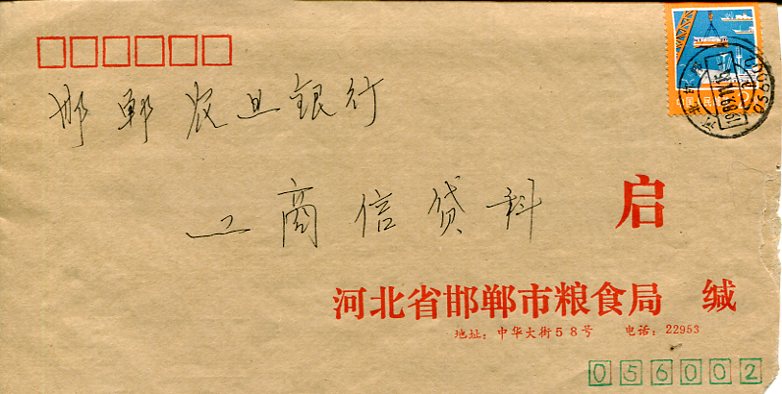 邯郸农业银行
工商信贷科 启
河北省邯郸市粮食局 缄
地址：中华大街58号 电话：22953
056002